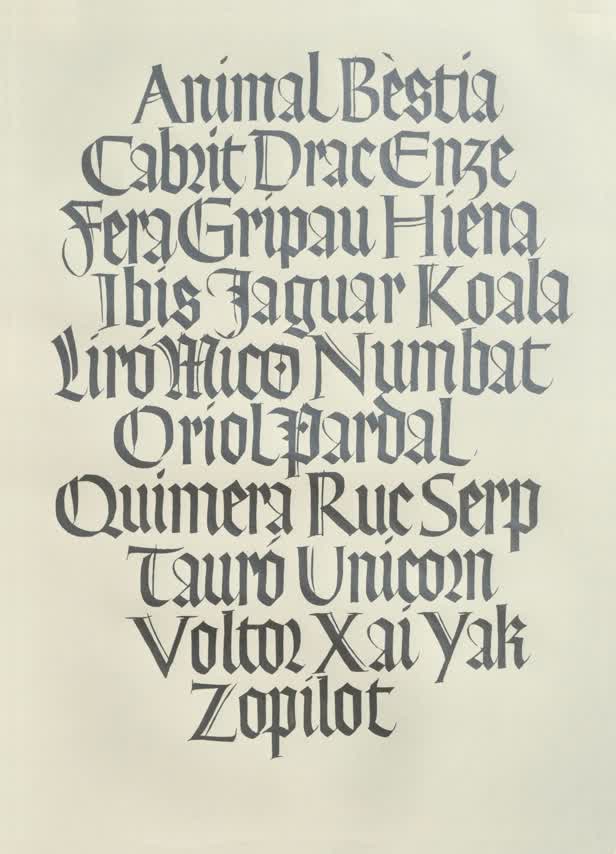 Animal Bèstia
Cabrit Drac Enze
Fera Gripau Hiena
Ibis Jaguar Koala
Liró Mico Numbat
Oriol Pardal
Quimera Ruc Serp
Tauró Unicorn
Voltor Xai Yak
Zopilot